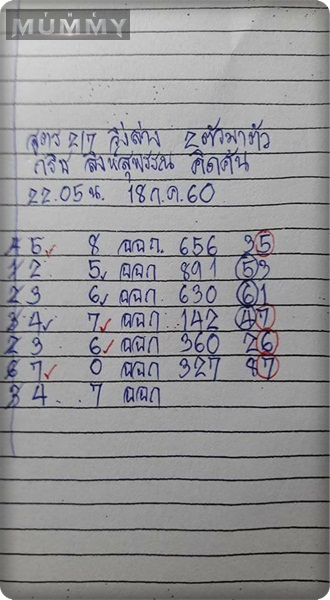 THE
MUMMY
สูตร 2/7 วิ่งล่าง 2ตัวมาตัว
กริช สิงห์สุพรรณ คิดค้น
22.05 น. 18 ก.ค.60
4 5 8 ออก. 656 35
1 2 5 ออก 891 53
2 3 6 ออก 630 61
3 4 7 ออก 142 47
2 3 6 ออก 360 26
6 7 0 ออก 327 87
3 4 . . 7 ออก